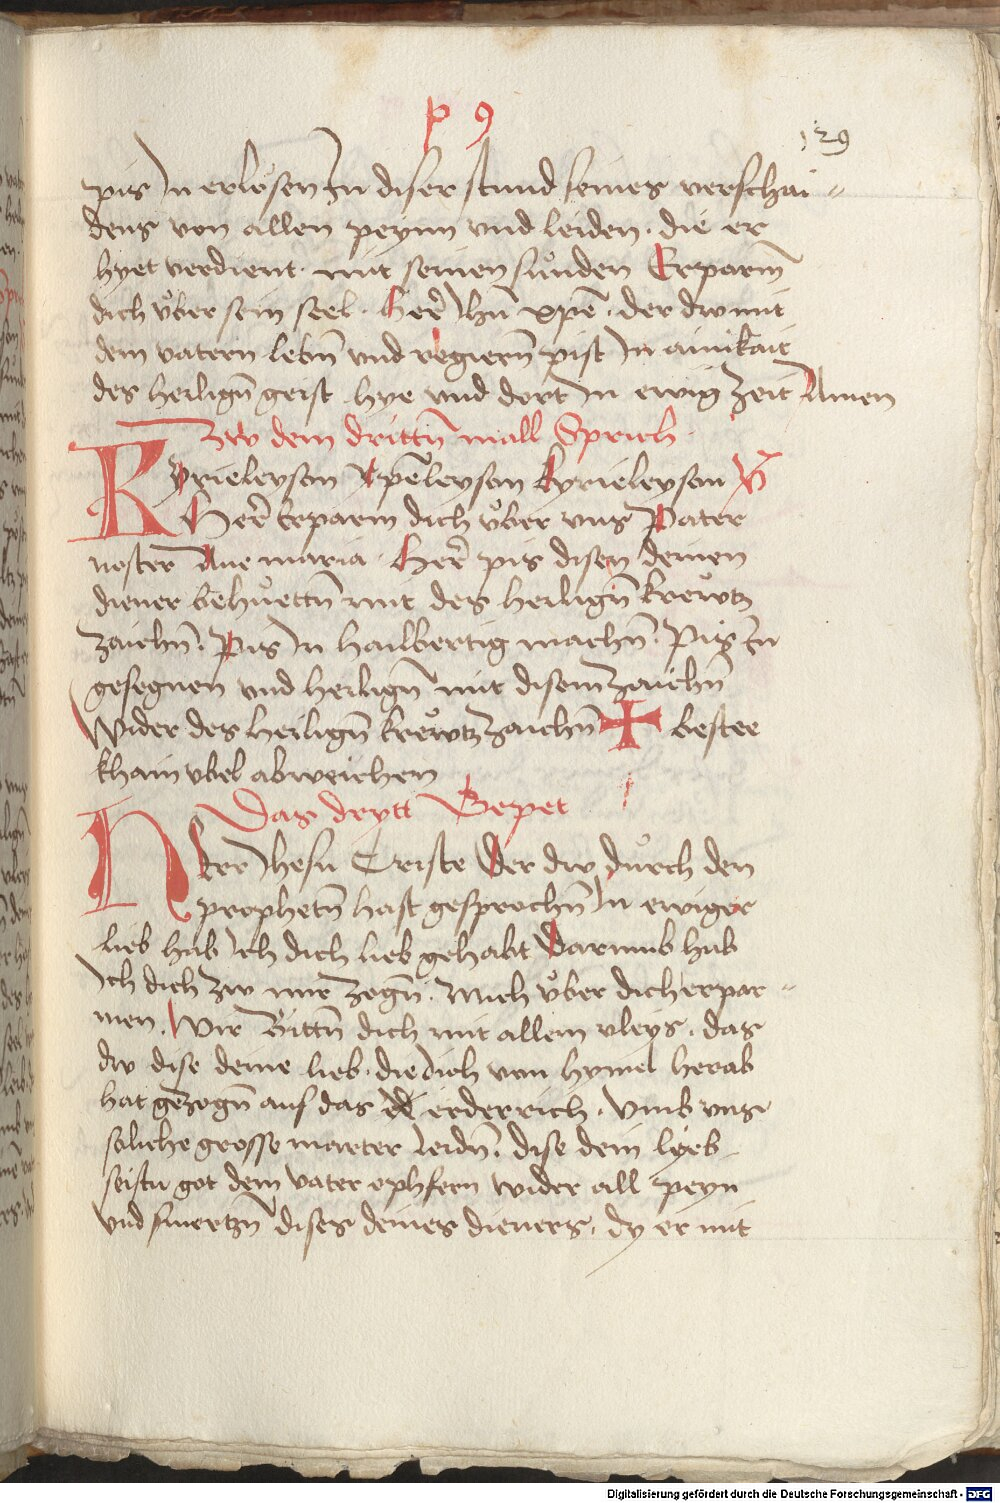 p 9
129
pis In erlösen Zu diser stund seines verschai=
dens von allen peynn vnd leiden. die er
hyet verdient. mit seinen sünden Erparm̄
dich vͦber sein seel. herr̄ Ihū xp̄e. der dw mit
dem vatern lebn̄ vnd regiern̄ pist In ainikait
des heilign̄ geist hye vnd dort In ewig zeit Amen
Zw dem drittn̄ mall Sprich.
Kyrieleyson Xp̄eleyson kyrieleyson V̄
Herr̄ Erparm dich vͦber vns Pater
noster Aue maria. Herr̄ pis disen deinen
diener behuettn̄ mit des heilign̄ krewtz
zaichn̄. Pis In hailbertig machn̄. Pis In
gesegnen vnd heilign̄ mit disem zaichn̄
Wider des heilign̄ krewtz zaichn̄ ✠ bestee
khain vbel abweichen
Das drytt Gepet
Herr Ihesu Criste Der dw durch den
prophetn̄ hast gesprochn̄ In ewiger
lieb hab Ich dich lieb gehabt Darumb hab
Ich dich zw mir zogn̄. Mich vͦber dich erpar=
men. Wir Bittn̄ dich mit allem vleys. das
dw dise deine lieb. die dich von hymel herab
hat gezogn̄ auf das erderrich. Vmb vns
soliche grosse marter leidn̄. dise dein lieb
seistu got dem vater ophfern wider all peyn
vnd smertzn̄ dises deines dieners. dy er mit
Digitalisierung gefördert durch die Deutsche Forschungsgemeinschaft - DFG